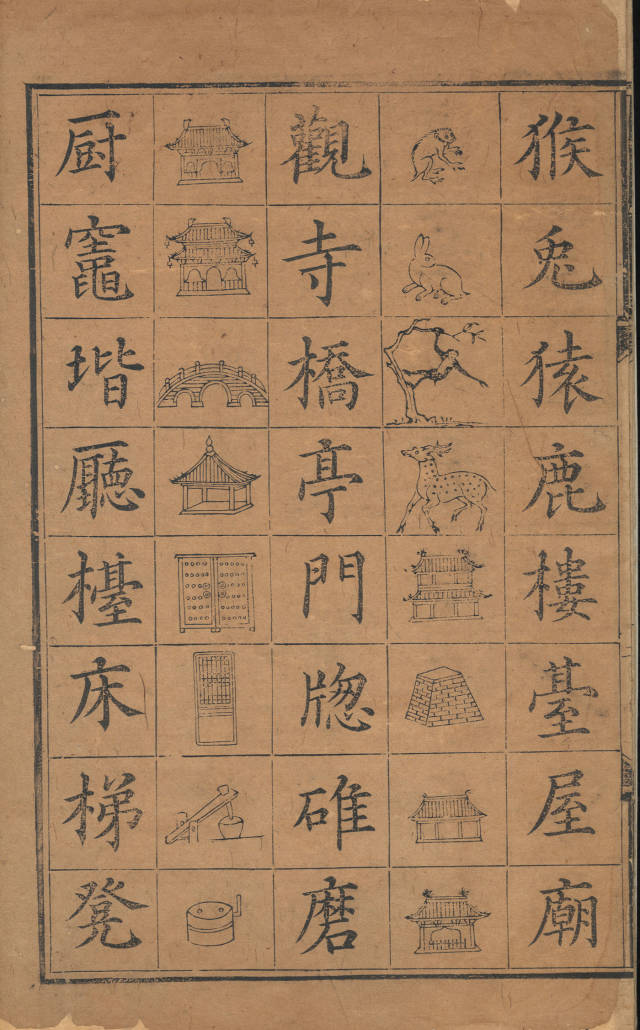 猴兎猿鹿樓臺屋廟
觀寺橋亭門牕碓磨
厨竈堦廳檯床梯凳